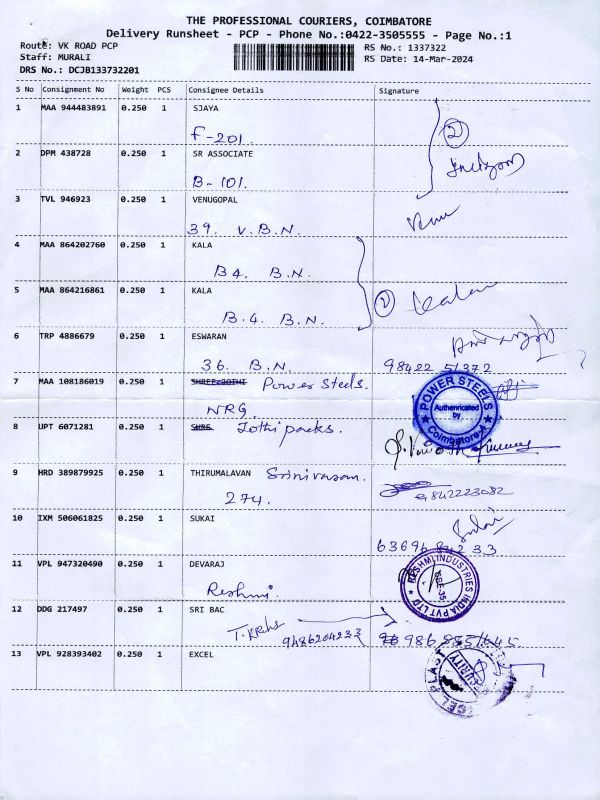 THE PROFESSIONAL COURIERS, COIMBATORE
Delivery Runsheet - PCP - Phone No.:0422-3505555 - Page No.:1
Route: VK ROAD PCP RS No.: 1337322
Staff: MURALI RS Date: 14-Mar-2024
DRS No.: DCJB133732201
S No Consignment No Weight PCS Consignee Details Signature
1 MAA 944483891 0.250 1 SJAYA
F-201.
2 DPM 438728 0.250 1 SR ASSOCIATE
B-101.
2
3 TVL 946923 0.250 1 VENUGOPAL
39. V.B.N.
4 MAA 864202760 0.250 1 KALA
B4. B.N.
5 MAA 864216861 0.250 1 KALA
B.4. B.N.
2
6 TRP 4886679 0.250 1 ESWARAN
36. B.N. 98422 51372
7 MAA 108186019 0.250 1 SHREE JOTHI Power Steels.
NRG.
POWER STEELS
Authenticated by
Coimbatore
8 UPT 6071281 0.250 1 SHRE Jothi packs.
9 HRD 389879925 0.250 1 THIRUMALAVAN Srinivasan.
274. 9842223082
10 IXM 506061825 0.250 1 SUKAI
11 VPL 947320490 0.250 1 DEVARAJ
Reshmi.
RESHMI INDUSTRIES INDIA PVT LTD
12 DDG 217497 0.250 1 SRI BAC
9486204233
13 VPL 928393402 0.250 1 EXCEL
SECURITY